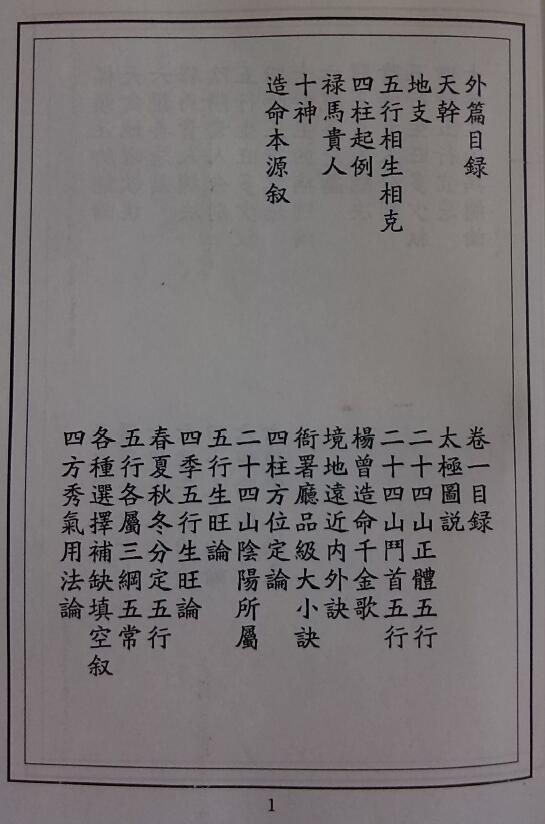 外篇目録
天幹
地支
五行相生相克
四柱起例
禄馬貴人
十神
造命本源叙
卷一目録
太極圖説
二十四山正體五行
二十四山鬥首五行
楊曾造命千金歌
境地遠近内外訣
衙署廳品級大小訣
四柱方位定論
二十四山陰陽所屬
五行生旺論
四季五行生旺論
春夏秋冬分定五行
五行各屬三綱五常
各種選擇補缺填空叙
四方秀氣用法論
1